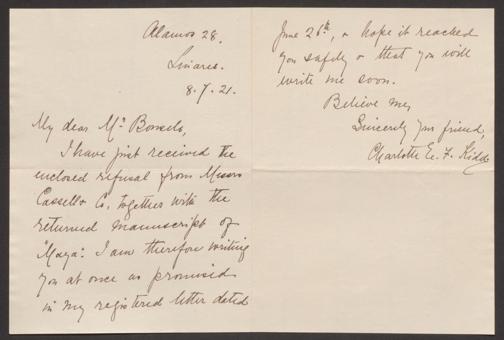 Alamos 28.
Linares.
8.7.21.
My dear Mr Bonsels,
I have just received the
enclosed refusal from Messrs
Cassell & Co, together with the
returned manuscript of
"Maya". I am therefore writing
you at once as promised
in my registered letter dated
June 26th, & hope it reached
you safely & that you will
write me soon.
Believe me,
Sincerely your friend,
Charlotte E. F. Kidd